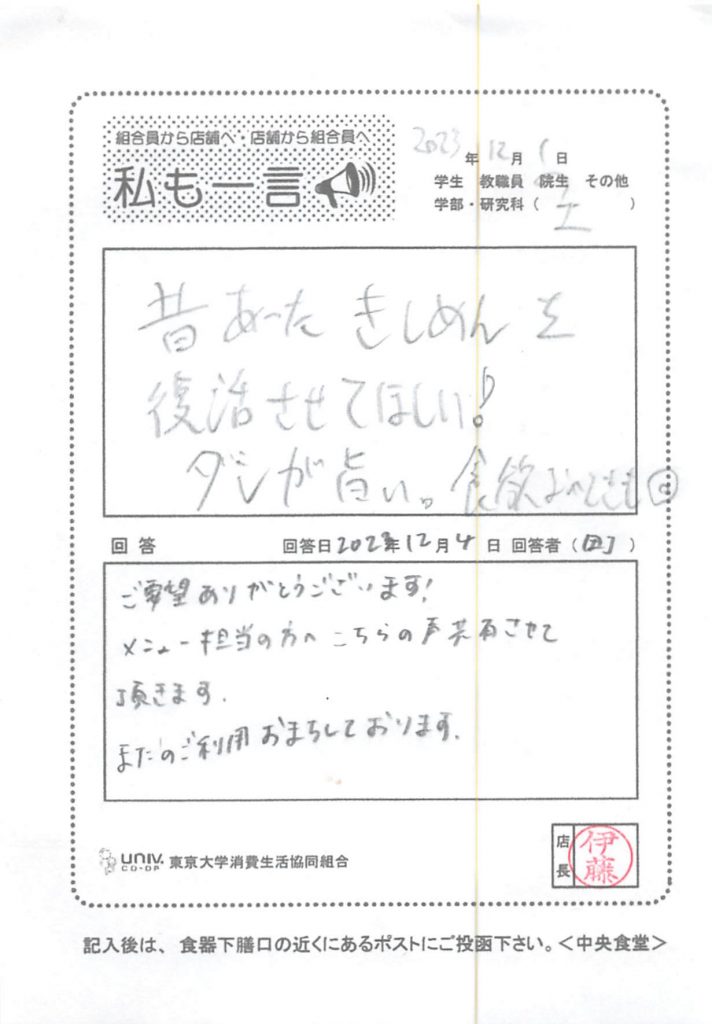 組合員から店舗へ・店舗から組合員へ
私も一言
2023年12月1日
学生 教職員 院生 その他
学部・研究科（ 工 ）
昔あった きしめん を
復活させてほしい!
ダシが旨い。
回答
回答日2023年12月4日 回答者（ ）
ご要望ありがとうございます!
メニュー担当の方へこちらの声共有させて
頂きます.
またのご利用おまちしております.
店長
伊藤
UNIV. CO-OP 東京大学消費生活協同組合
記入後は、食器下膳口の近くにあるポストにご投函下さい。＜中央食堂＞